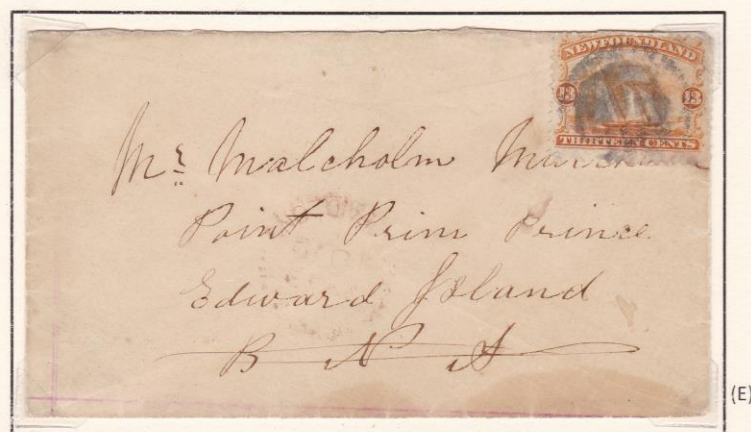 NEWFOUNDLAND
13 13
THIRTEEN CENTS
Mr Malcholm
Point Prim Prince
Edward Island
B N A
(E)